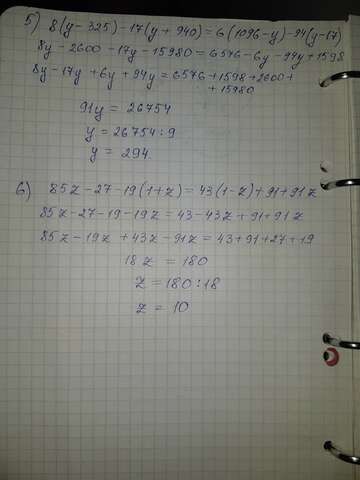 5) 8(y-325)-17(y+940)=6(1096-y)-94(y-17)
8y-2600-17y-15980=6576-6y-94y+1598
8y-17y+6y+94y=6576+1598+2600+
+15980
91y=26754
y=26754:9
y=294.
6) 85z-27-19(1+z)=43(1-z)+91+91z
85z-27-19-19z=43-43z+91+91z
85z-19z+43z-91z=43+91+27+19
18z=180
z=180:18
z=10